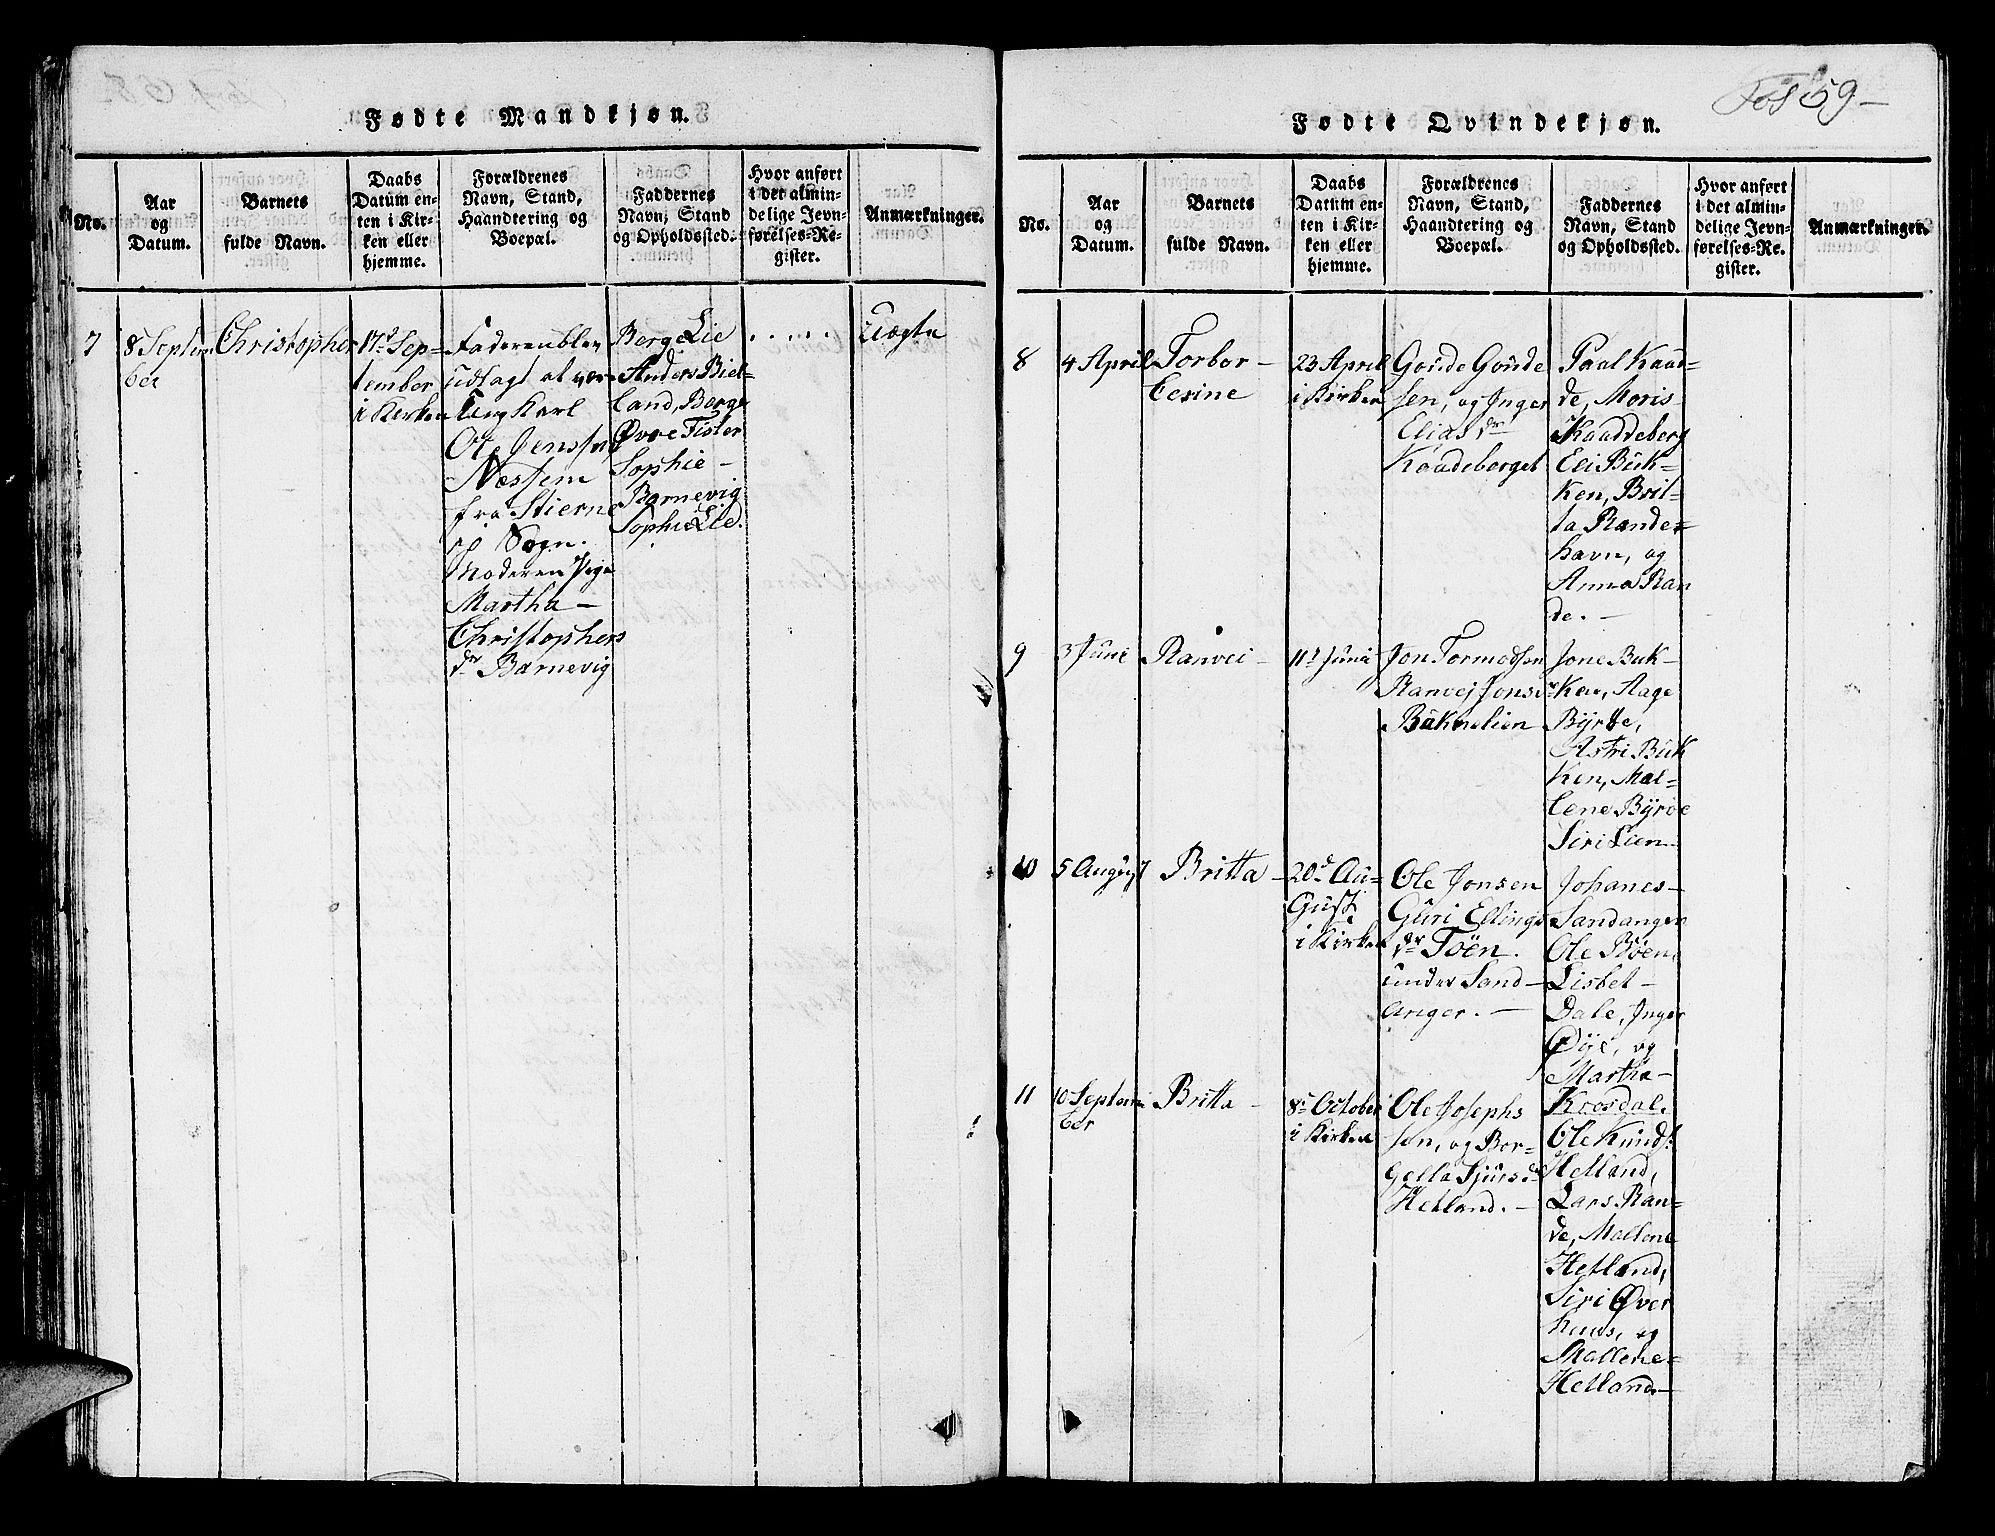 Fol 59-
Fødte Mandkjøn.
No.
Aar
og
Datum.
Barnets
fulde Navn.
Daabs
Datum en-
ten i Kir-
ken eller
hjemme.
Forældrenes
Navn, Stand,
Haandtering og
Boepæl.
Faddernes
Navn, Stand
og Opholdssted.
Hvor anført
i det almin-
delige Jevn-
førelses-Re-
gister.
Anmærkninger.
7
8 Septem
ber
Christopher
17d Sep-
tember
i Kirken
Faderen blev
udlagt at være
Ung Karl
Ole Jensen
Næstem
fra Stierne
i Sogn.
Moderen Pige
Martha -
Christophers
dr Barnevig
Berge Lie
Anders Biel-
land, Berge
Øvre Tister
Sophie -
Barnevig
Sophie Lie.
. . . . .
Uægte
Fødte Qvindekjøn.
No.
Aar
og
Datum.
Barnets
fulde Navn.
Daabs
Datum en-
ten i Kir-
ken eller
hjemme.
Forældrenes
Navn, Stand,
Haandtering og
Boepæl.
Faddernes
Navn, Stand
og Opholdssted.
Hvor anført
i det almin-
delige Jevn-
førelses-Re-
gister.
Anmærkninger.
8
4 April
Torbor -
Cerine
23 April
i Kirken
Goude Goude
sen, og Inger
Elias dr
Kaadeberget
Paal Kaad-
de, Moris
Kaaddeberg
Eli Buk-
ken, Brit-
ta Rande-
havn, og
Anna Ran
de. -
9
3 Juni
Ranvei -
11d Juni
Jon Tormodsen
Ranvej Jonsdr
Bukkelien
Jone Buk-
ken, Aage
Byrke,
Astri Buk
ken, Mal-
lene Byrke
Siri Lien
10
5 August
Britta -
20d Au-
gust
i Kirken
Ole Jonsen
Guri Ellings
dr Toen.
under Sand-
anger. -
Johanes-
Sandanger
Ole Bøen,
Lisbet -
Dale, Inger
Øye, og
Martha -
Krosdal.
11
10 Septem
ber
Britta -
8de October
i Kirken
Ole Josephs
sen, og Bor-
gella Sjursd
Hetland. -
Ole Knuds:
Hetland,
Lars Ran-
de, Mallene
Hetland,
Siri Øver
huus, og
Mallene -
Hetland -